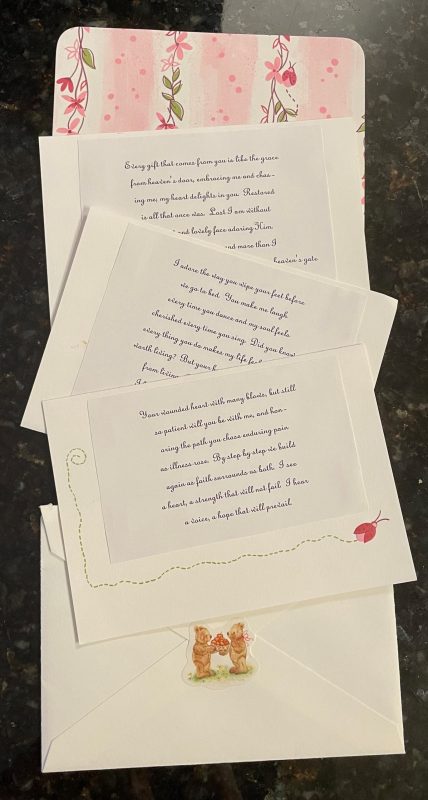 Every gift that comes from you is like the grace
from heaven's door, embracing me and chas-
ing me, my heart delights in you. Restored
is all that once was. Lost I am without
and lovely face adoring Him.
and more than I
heaven's gate
I adore the way you wipe your feet before
to go to bed. You make me laugh
every time you dance and my soul feels
cherished every time you sing. Did you know
every thing you do makes my life
worth living? But your
from living
I
Your wounded heart with many blows, but still
so patient will you be with me, and hon-
oring the path you chose enduring pain
as illness rose. By step by step we build
again as faith surrounds us both. I see
a heart, a strength that will not fail. I hear
a voice, a hope that will prevail.